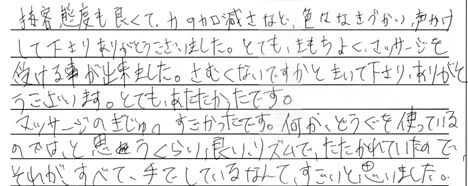 接客態度も良くて、力のカロ減さなど、色々なきづかい、声かけ
して下さりありがとうございました。とても、きもちよく、マッサージを
受ける事が出来ました。さむくないですかときいて下さり、ありがと
うございます。とても、あたたかったです。
マッサージのぎじゅつ、すごかったです。何か、どうぐを使っている
のでは、と思うくらい、良い、リズムで、たたかれていたので、
それが、すべて、手でしているなんて、すごいと思いました。